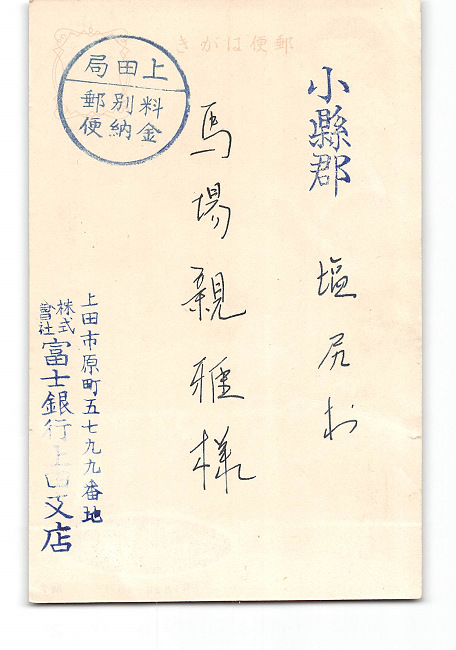 郵便はがき
上田局
料金別納郵便
小縣郡 塩尻村
馬場親雅様
上田市原町五七九九番地
株式會社富士銀行上田支店